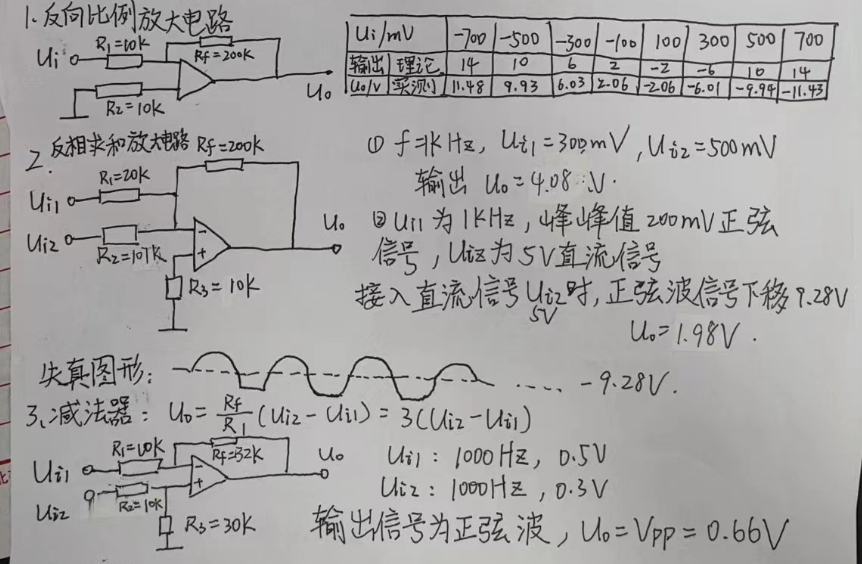 1. 反向比例放大电路
Ui R1=10K Rf=200K R2=10K Uo
Ui/mV -700 -500 -300 -100 100 300 500 700
输出 理论 14 10 6 2 -2 -6 10 14
Uo/V 实测 11.48 9.93 6.03 2.06 -2.06 -6.01 -9.94 -11.43
2. 反相求和放大电路 Rf=200K
R1=20K
Ui1
Ui2 Uo
- +
R3=10K
① f=1KHz, Ui1=300mV, Ui2=500mV
输出 Uo=4.08 V.
② Ui1 为 1KHz, 峰峰值 200mV 正弦
信号, Ui2 为 5V 直流信号
接入直流信号 Ui2 时, 正弦波信号下移 9.28V
5V
Uo=1.98V.
失真图形: ..... -9.28V.
3、减法器: Uo = Rf/R1 (Ui2 - Ui1) = 3(Ui2 - Ui1)
Rf=32K Uo
Ui1 - +
Ui2 R2=10K
R3=30K
Ui1: 1000Hz, 0.5V
Ui2: 1000Hz, 0.3V
输出信号为正弦波, Uo=Vpp=0.66V